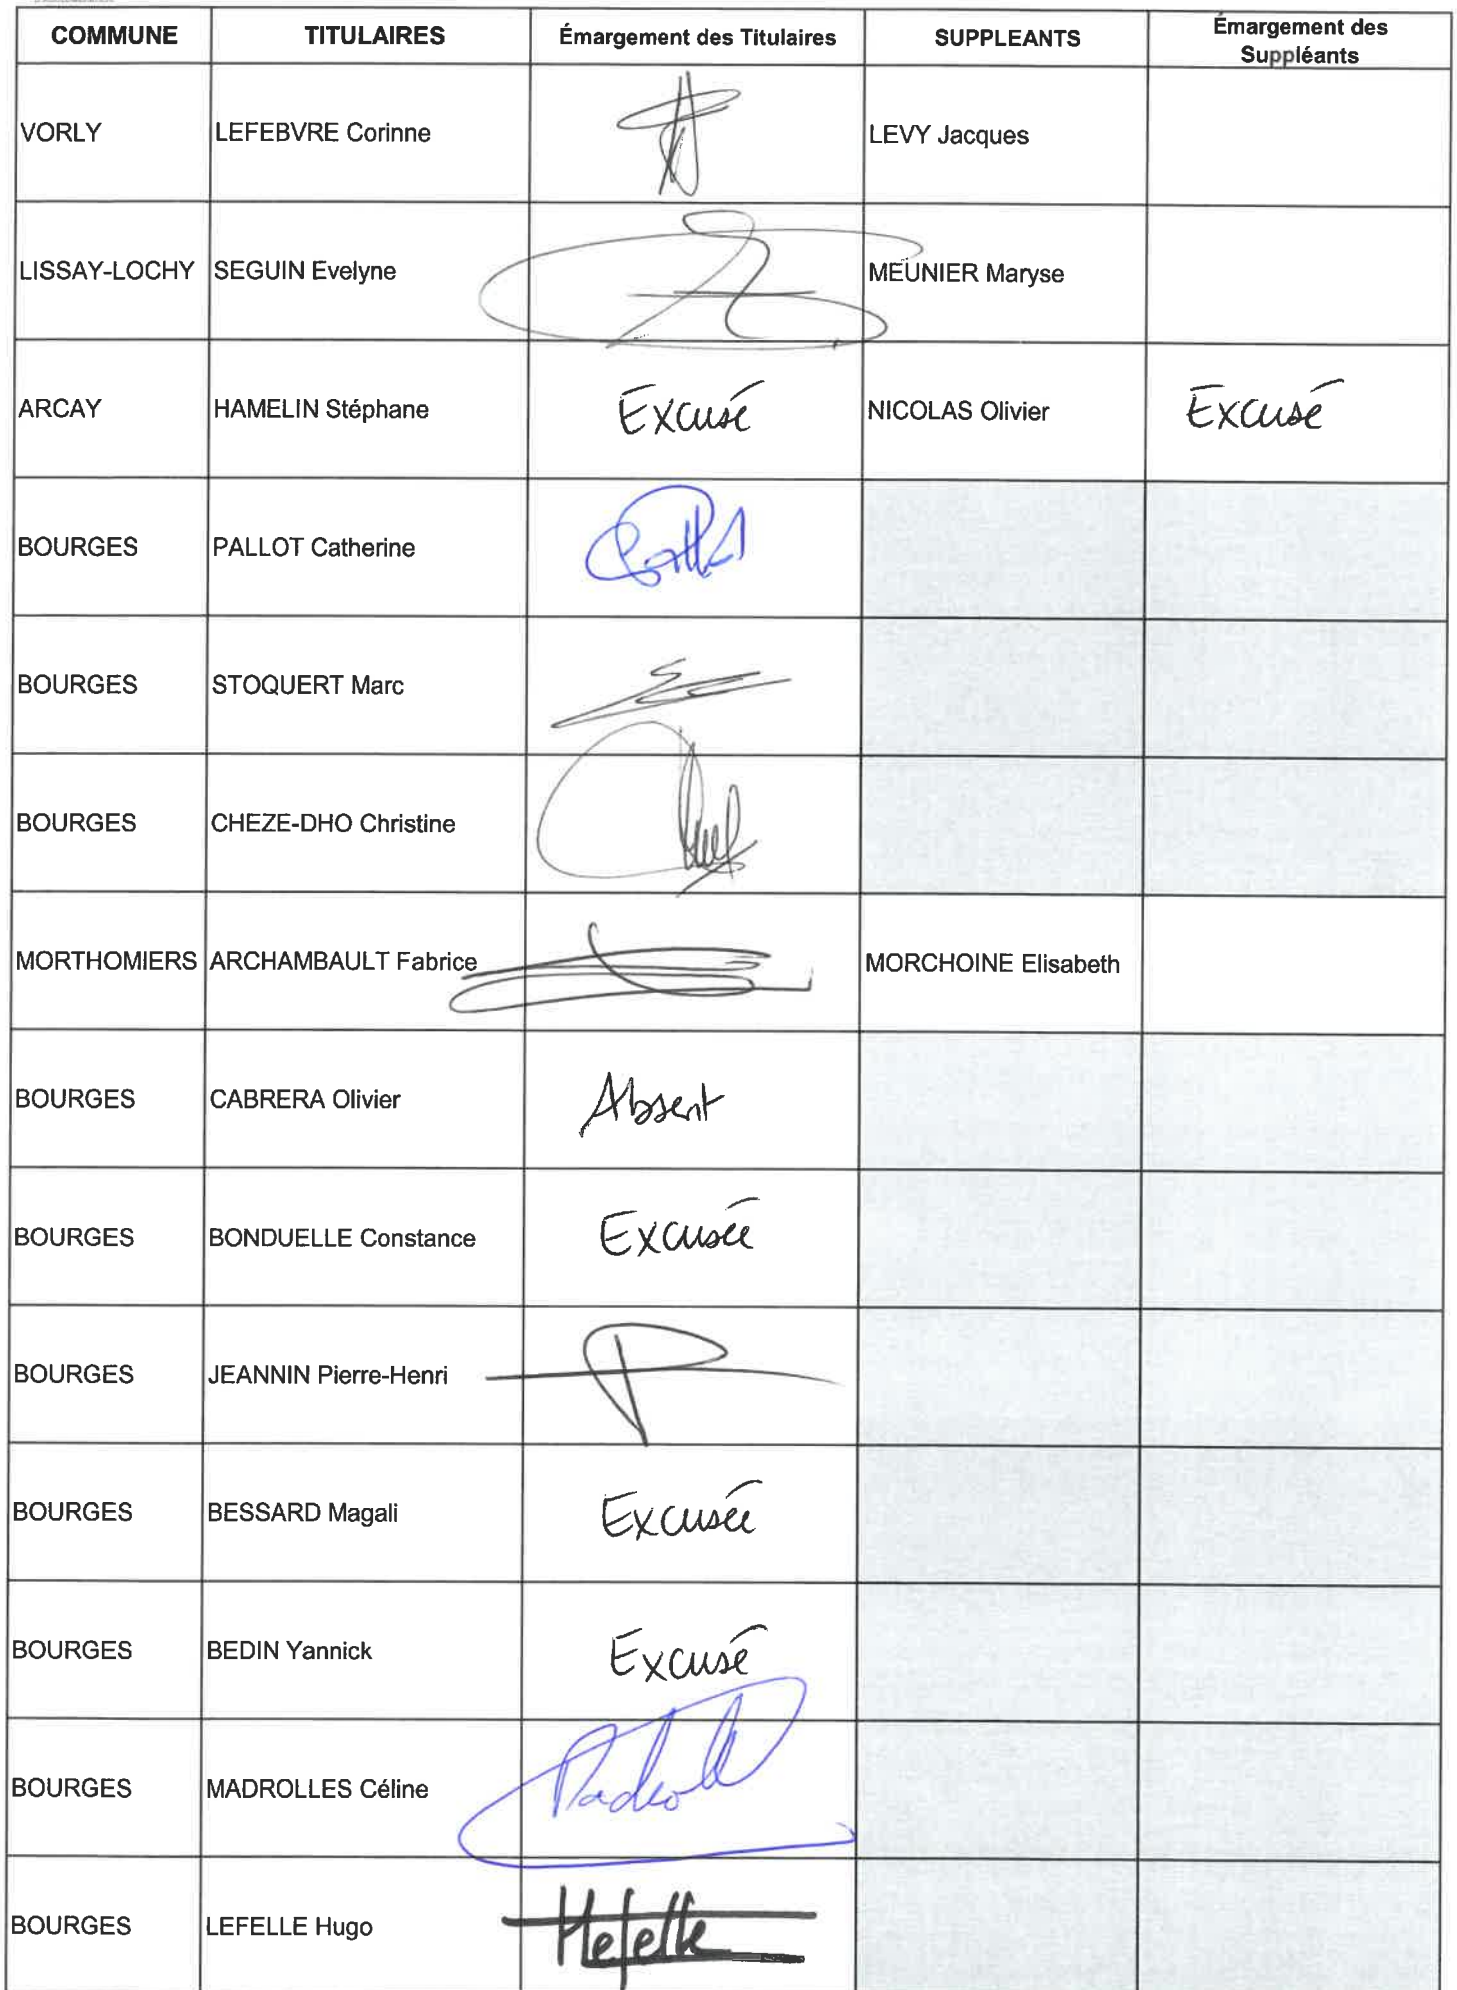 COMMUNE TITULAIRES Émargement des Titulaires SUPPLEANTS Émargement des
Suppléants
VORLY LEFEBVRE Corinne LEVY Jacques
LISSAY-LOCHY SEGUIN Evelyne MEUNIER Maryse
ARCAY HAMELIN Stéphane Excusé NICOLAS Olivier Excusé
BOURGES PALLOT Catherine
BOURGES STOQUERT Marc
BOURGES CHEZE-DHO Christine
MORTHOMIERS ARCHAMBAULT Fabrice MORCHOINE Elisabeth
BOURGES CABRERA Olivier Absent
BOURGES BONDUELLE Constance Excusée
BOURGES JEANNIN Pierre-Henri
BOURGES BESSARD Magali Excusée
BOURGES BEDIN Yannick Excusé
BOURGES MADROLLES Céline
BOURGES LEFELLE Hugo Hefelle